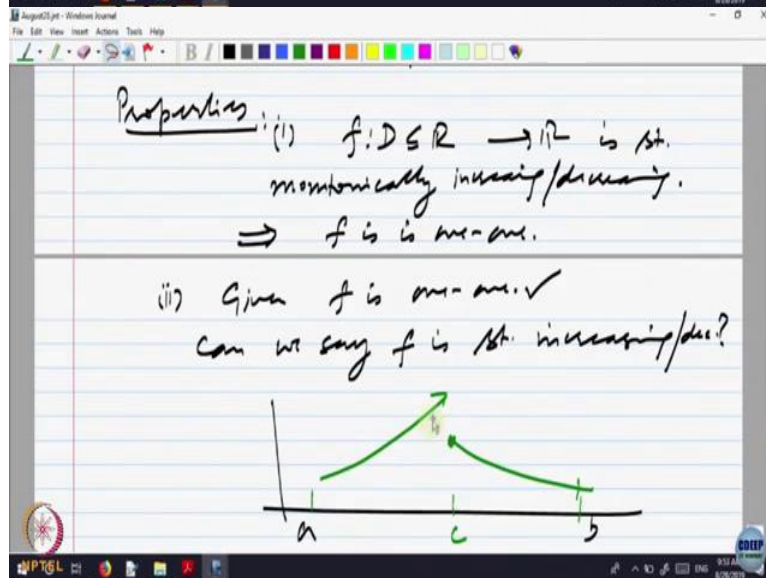 August28.jnt - Windows Journal
File Edit View Insert Actions Tools Help
B I
Properties: (i) f: D ⊆ R → R is st.
monotonically increasing/decreasing.
⇒ f is is one-one.
(ii) Given f is one-one. ✓
Can we say f is st. increasing/dec?
a c b
NPTEL
CDEEP
ENG
8/28/2019